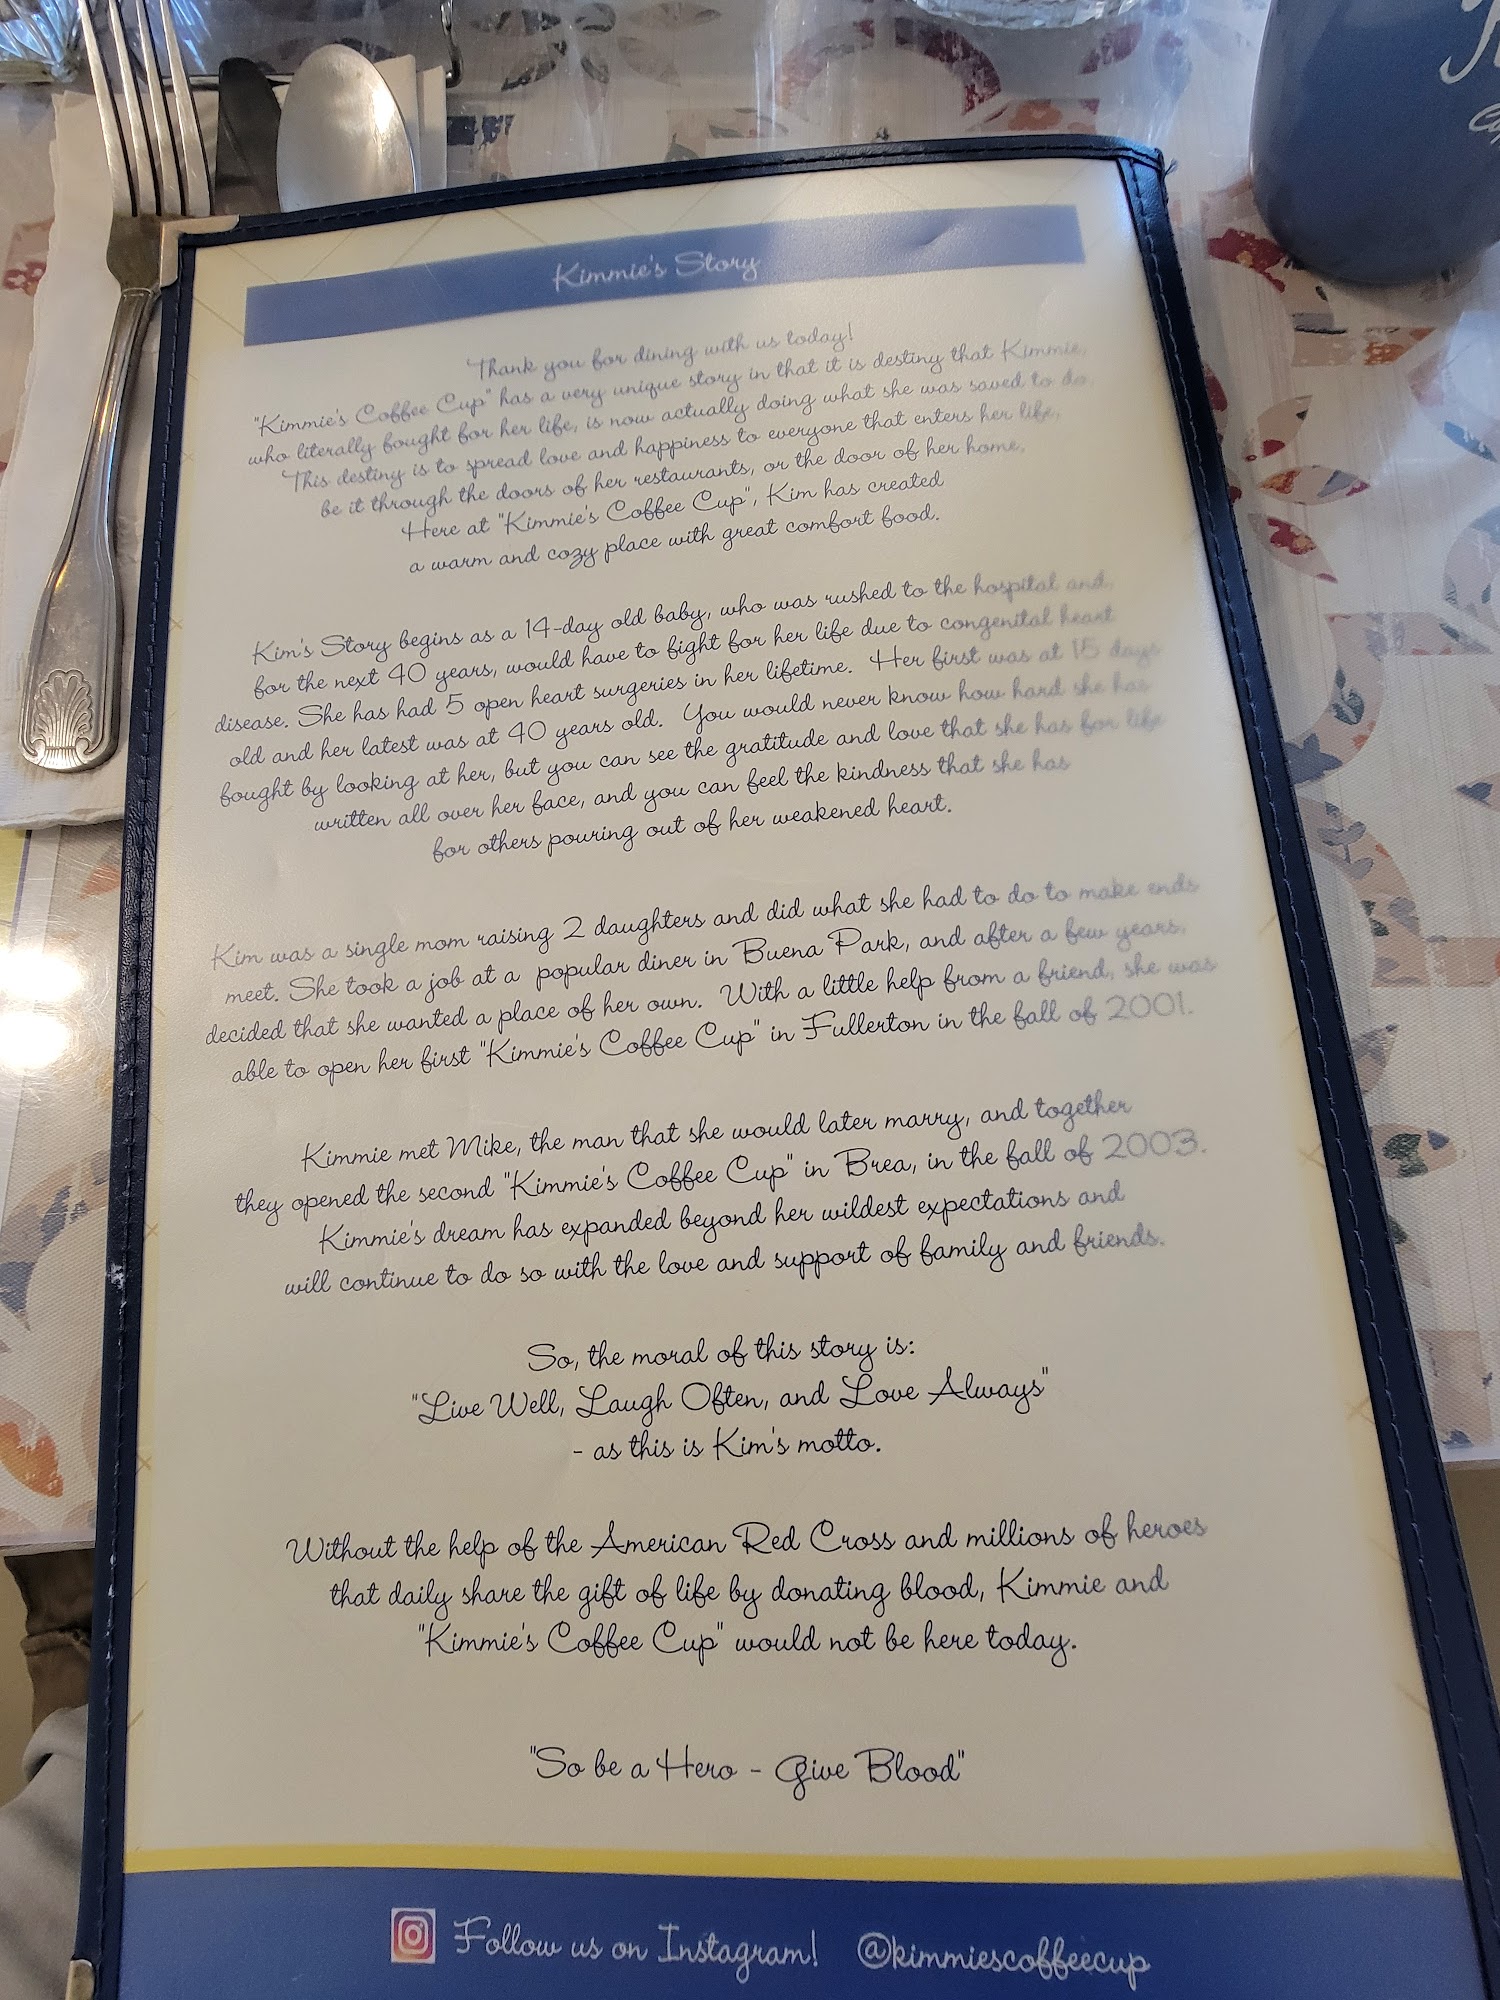 Kimmie's Story
Thank you for dining with us today!
"Kimmie's Coffee Cup" has a very unique story in that it is destiny that Kimmie,
who literally fought for her life, is now actually doing what she was saved to do.
This destiny is to spread love and happiness to everyone that enters her life,
be it through the doors of her restaurants, or the door of her home.
Here at "Kimmie's Coffee Cup", Kim has created
a warm and cozy place with great comfort food.
Kim's Story begins as a 14-day old baby, who was rushed to the hospital and,
for the next 40 years, would have to fight for her life due to congenital heart
disease. She has had 5 open heart surgeries in her lifetime. Her first was at 15 days
old and her latest was at 40 years old. You would never know how hard she has
fought by looking at her, but you can see the gratitude and love that she has for life
written all over her face, and you can feel the kindness that she has
for others pouring out of her weakened heart.
Kim was a single mom raising 2 daughters and did what she had to do to make ends
meet. She took a job at a popular diner in Buena Park, and after a few years,
decided that she wanted a place of her own. With a little help from a friend, she was
able to open her first "Kimmie's Coffee Cup" in Fullerton in the fall of 2001.
Kimmie met Mike, the man that she would later marry, and together
they opened the second "Kimmie's Coffee Cup" in Brea, in the fall of 2003.
Kimmie's dream has expanded beyond her wildest expectations and
will continue to do so with the love and support of family and friends.
So, the moral of this story is:
"Live Well, Laugh Often, and Love Always"
- as this is Kim's motto.
Without the help of the American Red Cross and millions of heroes
that daily share the gift of life by donating blood, Kimmie and
"Kimmie's Coffee Cup" would not be here today.
"So be a Hero - Give Blood"
Follow us on Instagram! @kimmiescoffeecup